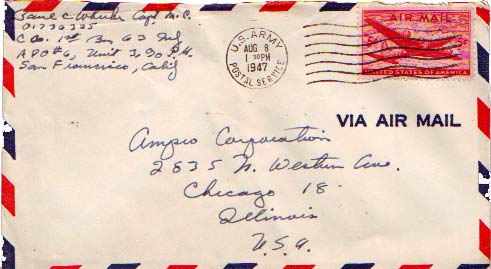 Paul C Wheeler Capt M.C.
O1736335
C Co. 1st Bn, 63 Inf
APO #6, Unit 3, 90 P.M.
San Francisco, Calif
U.S. ARMY
AUG 8
1 30PM
1947
POSTAL SERVICE
AIR MAIL
5¢ 5¢
UNITED STATES OF AMERICA
VIA AIR MAIL
Ampro Corporation
2835 N. Western Ave.
Chicago 18-
Illinois
U.S.A.